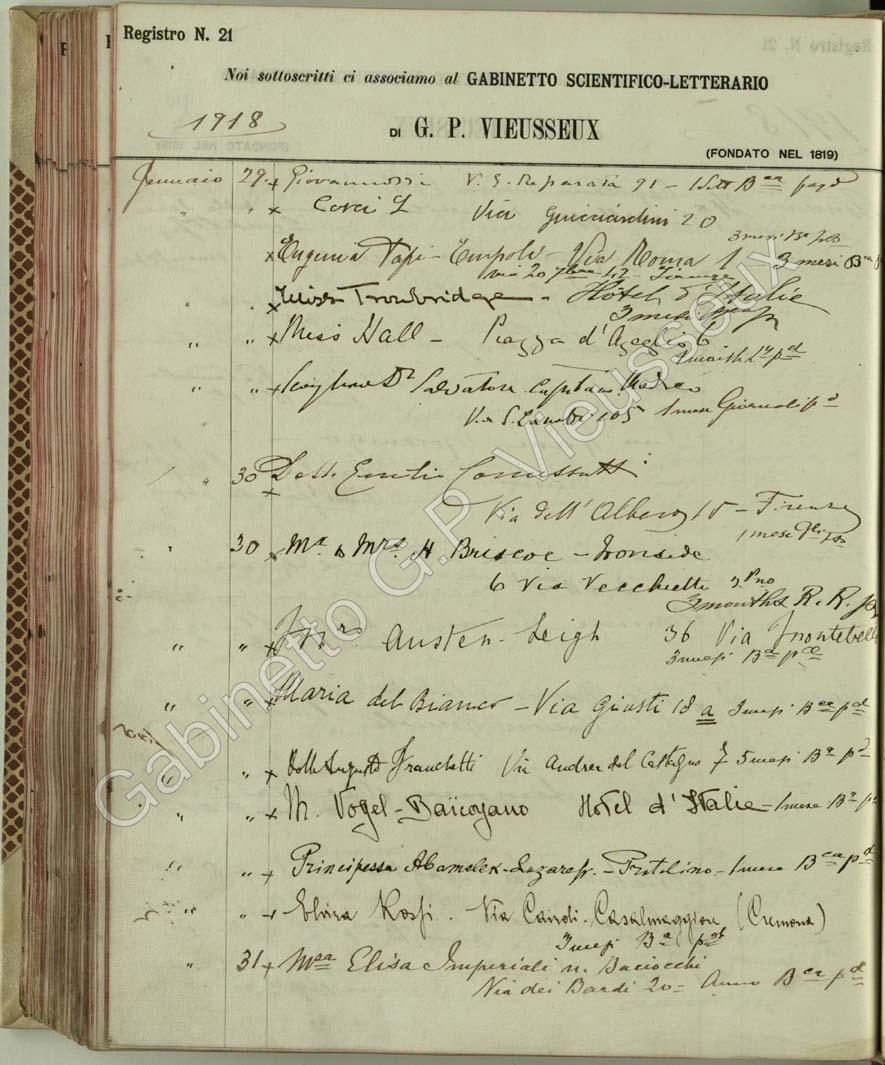 Registro N. 21
Noi sottoscritti ci associamo al GABINETTO SCIENTIFICO-LETTERARIO
1918
DI G. P. VIEUSSEUX
(FONDATO NEL 1819)
Gennaio 29 x Giovannozzi V. S. Reparata 91
" x Corci L Via Guicciardini 20
3 mesi
x Eugenia Papi - Empoli - Via Roma 1 - 3 mesi
Firenze
" x Miss Trowbridge - Hôtel d'Italie
3 mesi
" " x Miss Hall - Piazza d'Azeglio 6
" " x Dr Salvatore Capitano Medico
Via S. Zanobi 105 1 mese Giornali pd
" 30 x Dott. Emilio Comessatti
Via dell'Albero 15 - Firenze
1 mese
" 30 x Mr & Mrs H Briscoe - Ironside
6 Via Vecchietti 2º Pno
3 months R. R.
" " x Mrs. Austen-Leigh 36 Via Montebello
3 mesi Ba pd
" " x Maria del Bianco - Via Giusti 18 a 3 mesi Bca pd
" " x Dott Augusto Franchetti Via Andrea del Castagno 7 5 mesi Ba pd
" " x M. Vogel-Baïcoyano Hotel d'Italie - 1 mese Ba pd
" " x Principessa Abamelek-Lazareff. - Pratolino - 1 mese Bca pd
" " x Elvira Rossi. Via Cairoli. Casalmaggiore (Cremona)
3 mesi Ba pd
" 31 x Msa Elisa Imperiali n. Baciocchi
Via dei Bardi 20 = Anno Bca pd
Gabinetto G.P. Vieusseux